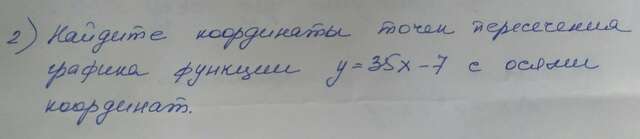 2) Найдите координаты точек пересечения
графика функции y=35x-7 с осями
координат.